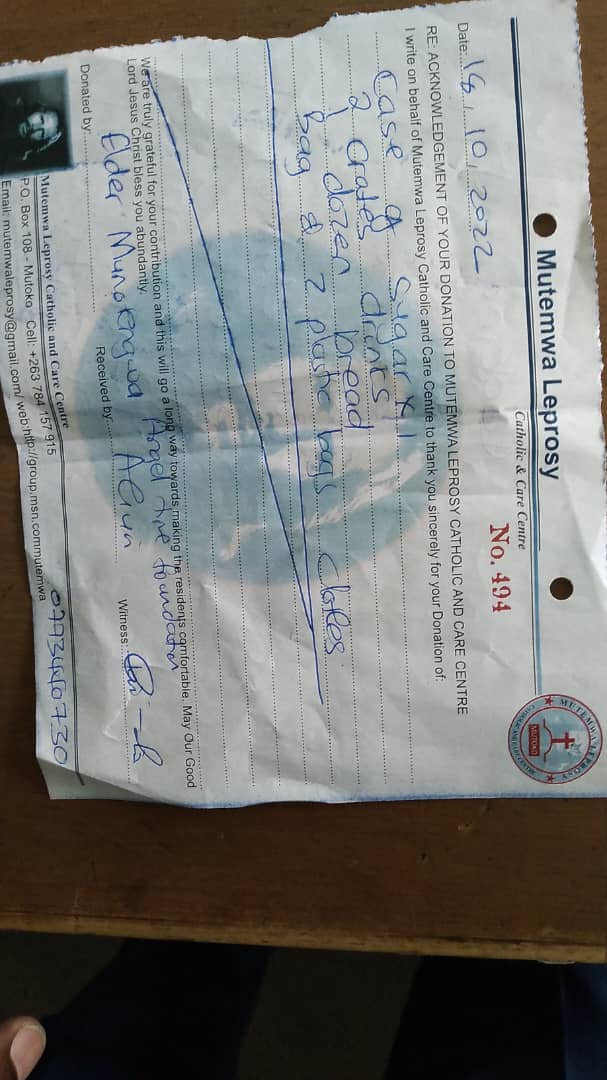 Mutemwa Leprosy
Catholic & Care Centre
MUTEMWA LEPROSY
MUTOKO
CATHOLIC AND CARE CENTRE
No. 494
Date: 18, 10, 2022
RE: ACKNOWLEDGEMENT OF YOUR DONATION TO MUTEMWA LEPROSY CATHOLIC AND CARE CENTRE
I write on behalf of Mutemwa Leprosy Catholic and Care Centre to thank you sincerely for your Donation of:
Case of Sugar x 1
2 Crates drinks
1 dozen bread
Bag & 2 plastic bags
We are truly grateful for your contribution and this will go a long way towards making the residents comfortable. May Our Good
Lord Jesus Christ bless you abundantly.
Angel
Donated by: Elder
Received by:
Witness:
Mutemwa Leprosy Catholic and Care Centre
P.O. Box 108 - Mutoko Cell: +263 784 157 915
Email: mutemwaleprosy@gmail.com/ web:http://group.msn.commutemwa